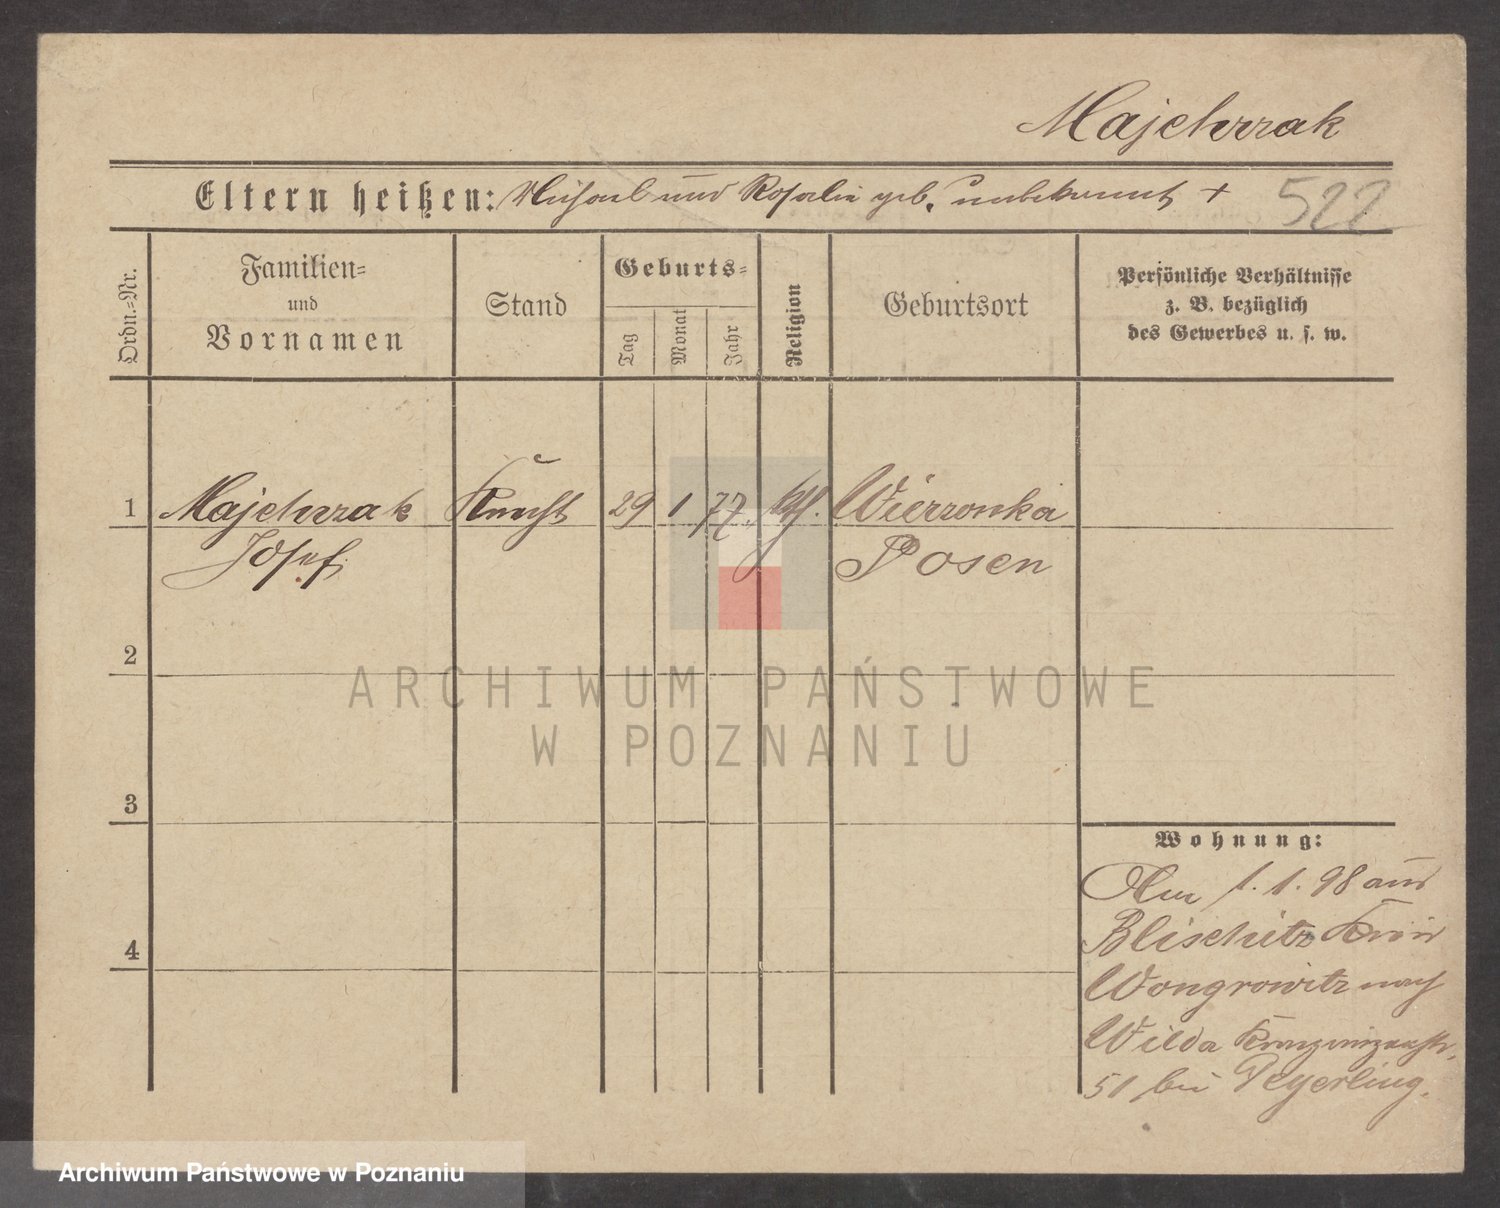 Majchrzak
Eltern heißen: Michael und Rosalie geb. unbekannt +
522
Ordn.=Nr.
Familien=
und
Vornamen
Stand
Geburts=
Tag
Monat
Jahr
Religion
Geburtsort
Persönliche Verhältnisse
z. B. bezüglich
des Gewerbes u. s. w.
1 Majchrzak Knecht 29 1 77 kth. Wierzonka
Josef Posen
2
3
4
Wohnung:
Am 1. 1. 98 aus
Blischütz Kreis
Wongrowitz nach
Wilda Kronprinzenstr.
51 bei Peyerling.
ARCHIWUM PAŃSTWOWE
W POZNANIU
Archiwum Państwowe w Poznaniu